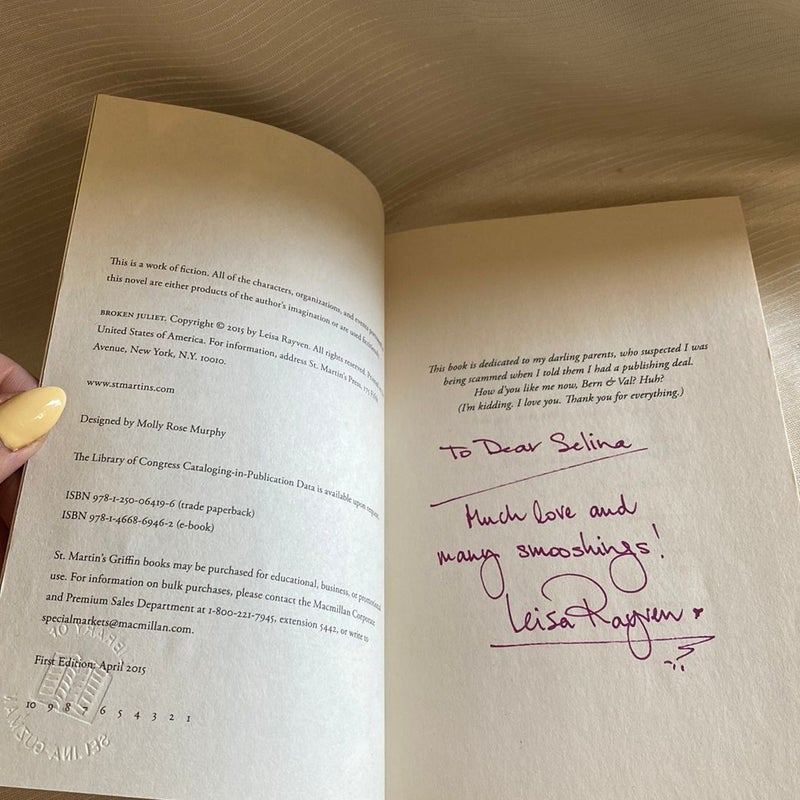 This is a work of fiction. All of the characters, organizations, and events portrayed in
this novel are either products of the author's imagination or are used fictitiously.
BROKEN JULIET. Copyright © 2015 by Leisa Rayven. All rights reserved. Printed
United States of America. For information, address St. Martin's Press, 175 Fifth
Avenue, New York, N.Y. 10010.
www.stmartins.com
Designed by Molly Rose Murphy
The Library of Congress Cataloging-in-Publication Data is available upon request.
ISBN 978-1-250-06419-6 (trade paperback)
ISBN 978-1-4668-6946-2 (e-book)
St. Martin's Griffin books may be purchased for educational, business, or promotional
use. For information on bulk purchases, please contact the Macmillan Corporate
and Premium Sales Department at 1-800-221-7945, extension 5442, or write to
specialmarkets@macmillan.com.
First Edition: April 2015
10 9 8 7 6 5 4 3 2 1
LIBRARY OF
SELINA
This book is dedicated to my darling parents, who suspected I was
being scammed when I told them I had a publishing deal.
How d'you like me now, Bern & Val? Huh?
(I'm kidding. I love you. Thank you for everything.)
To Dear Selina
Much love and
many smooshings!
Leisa Rayven